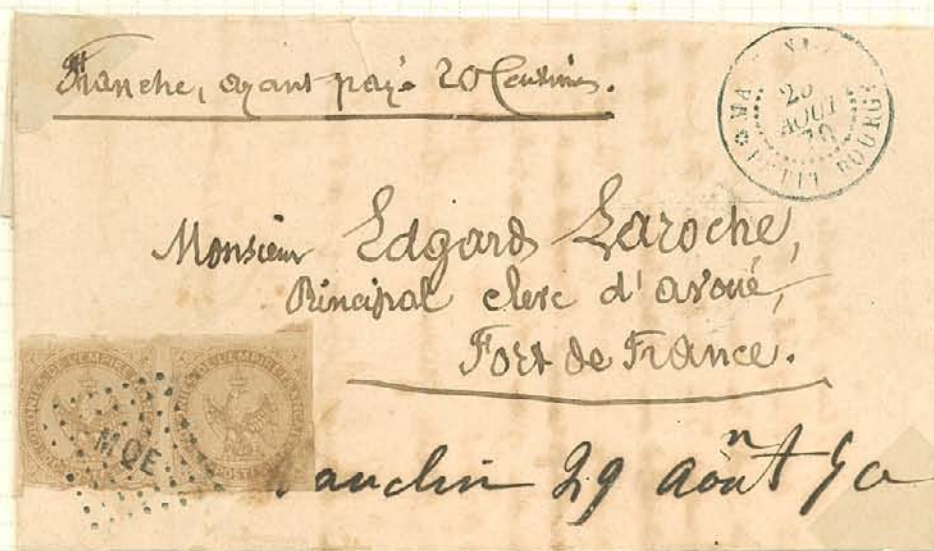 Franche, ayant payé 20 Centimes.
AOUT
PETIT BOURG
Monsieur Edgard Laroche,
Principal clerc d'avoué,
Fort de France.
COLONIES DE L'EMPIRE
DE L'EMPIRE
MQE
auclin 29 août 70